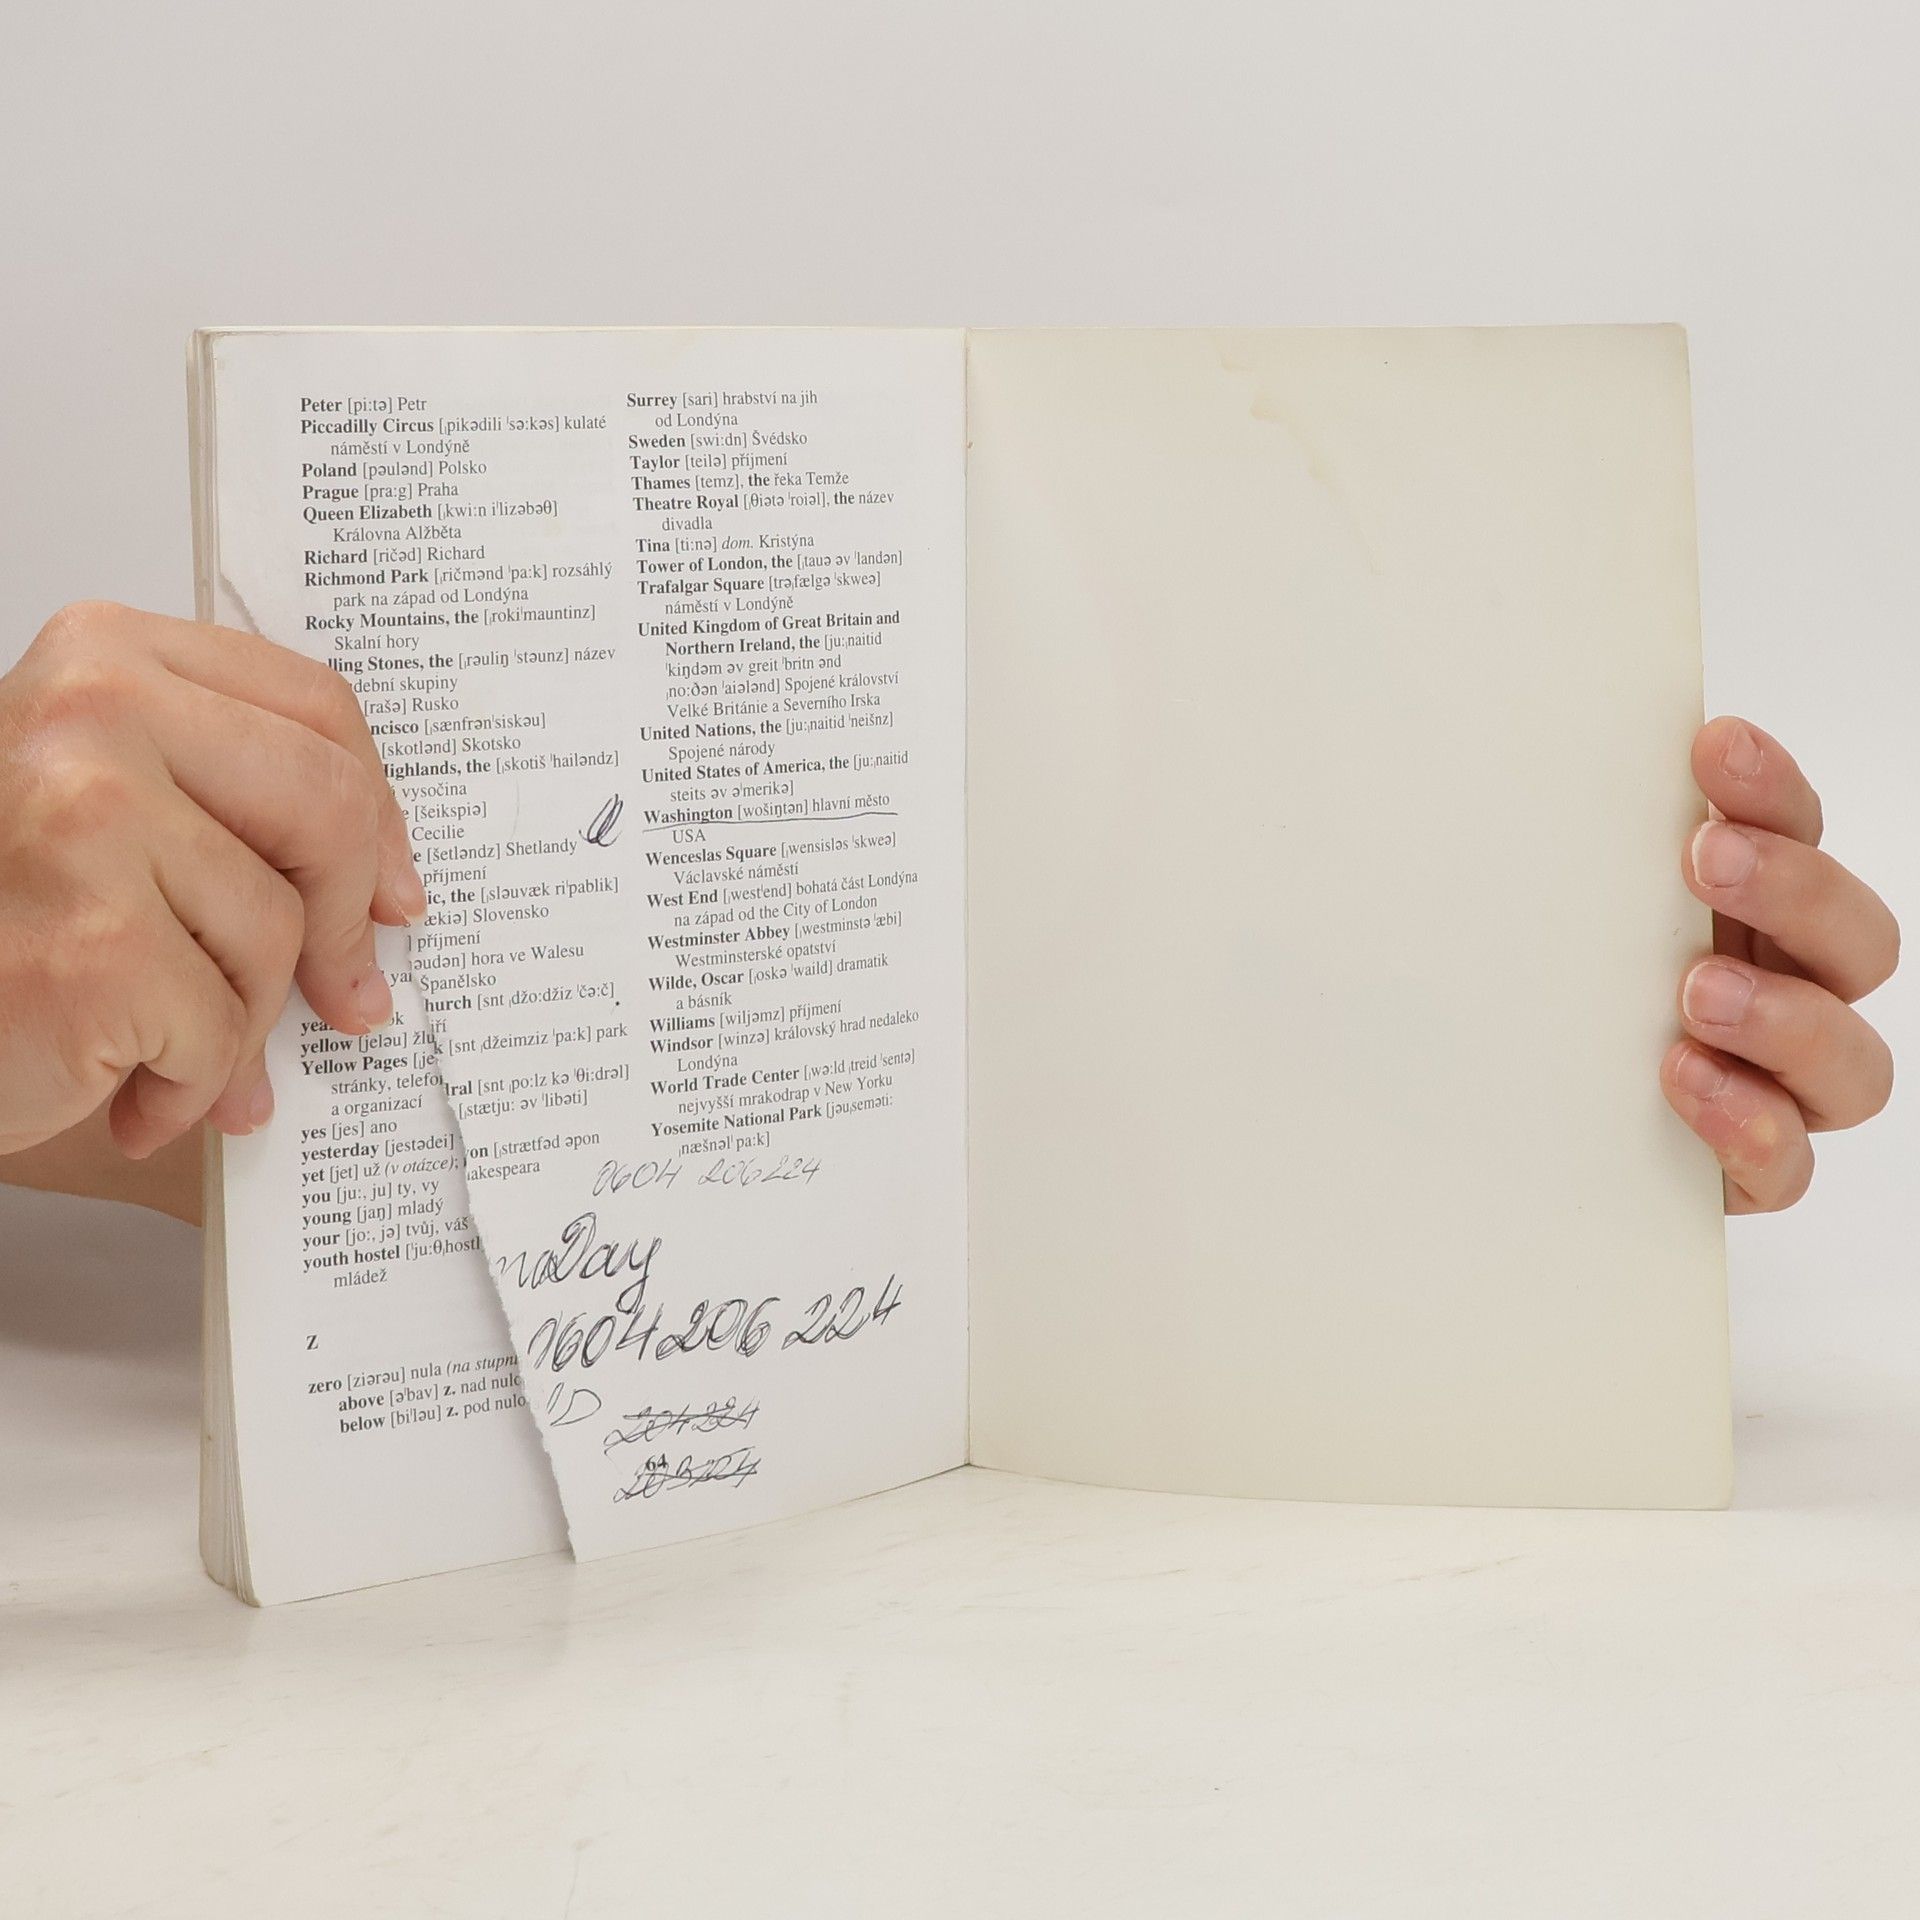 Peter [pi:tə] Petr
Piccadilly Circus [ˌpikədili ˈsə:kəs] kulaté
náměstí v Londýně
Poland [pəulənd] Polsko
Prague [pra:g] Praha
Queen Elizabeth [ˌkwi:n iˈlizəbəθ]
Královna Alžběta
Richard [ričəd] Richard
Richmond Park [ˌričmənd ˈpa:k] rozsáhlý
park na západ od Londýna
Rocky Mountains, the [ˌrokiˈmauntinz]
Skalní hory
lling Stones, the [ˌrəuliŋ ˈstəunz] název
dební skupiny
[rašə] Rusko
ncisco [ˌsænfrənˈsiskəu]
[skotlənd] Skotsko
Highlands, the [ˌskotiš ˈhailəndz]
vysočina
e [šeikspiə]
Cecilie
e [šetləndz] Shetlandy
příjmení
ic, the [ˌsləuvæk riˈpablik]
ækiə] Slovensko
] příjmení
əudən] hora ve Walesu
Španělsko
hurch [snt ˌdžo:džiz ˈčə:č]
iří
k [snt ˌdžeimziz ˈpa:k] park
dral [snt ˌpo:lz kə ˈθi:drəl]
[ˌstætju: əv ˈlibəti]
on [ˌstrætfəd əpon
akespeara
yellow [jeləu] žlu
Yellow Pages [ˌje
stránky, telefo
a organizací
yes [jes] ano
yesterday [jestədei]
yet [jet] už (v otázce);
you [ju:, ju] ty, vy
young [jaŋ] mladý
your [jo:, jə] tvůj, váš
youth hostel [ˈju:θˌhostl
mládež
z
zero [ziərəu] nula (na stupni
above [əˈbav] z. nad nulo
below [biˈləu] z. pod nulo
Surrey [sari] hrabství na jih
od Londýna
Sweden [swi:dn] Švédsko
Taylor [teilə] příjmení
Thames [temz], the řeka Temže
Theatre Royal [ˌθiətə ˈroiəl], the název
divadla
Tina [ti:nə] dom. Kristýna
Tower of London, the [ˌtauə əv ˈlandən]
Trafalgar Square [trəˌfælgə ˈskweə]
náměstí v Londýně
United Kingdom of Great Britain and
Northern Ireland, the [ju:ˌnaitid
ˈkiŋdəm əv greit ˈbritn ənd
ˌno:ðən ˈaiələnd] Spojené království
Velké Británie a Severního Irska
United Nations, the [ju:ˌnaitid ˈneišnz]
Spojené národy
United States of America, the [ju:ˌnaitid
steits əv əˈmerikə]
Washington [wošiŋtən] hlavní město
USA
Wenceslas Square [ˌwensisləs ˈskweə]
Václavské náměstí
West End [ˌwestˈend] bohatá část Londýna
na západ od the City of London
Westminster Abbey [ˌwestminstə ˈæbi]
Westminsterské opatství
Wilde, Oscar [ˌoskə ˈwaild] dramatik
a básník
Williams [wiljəmz] příjmení
Windsor [winzə] královský hrad nedaleko
Londýna
World Trade Center [ˌwə:ld ˌtreid ˈsentə]
nejvyšší mrakodrap v New Yorku
Yosemite National Park [jəuˌseməti:
ˌnæšnəlˈ pa:k]
0604 206224
Day
0604 206 224
204224
64